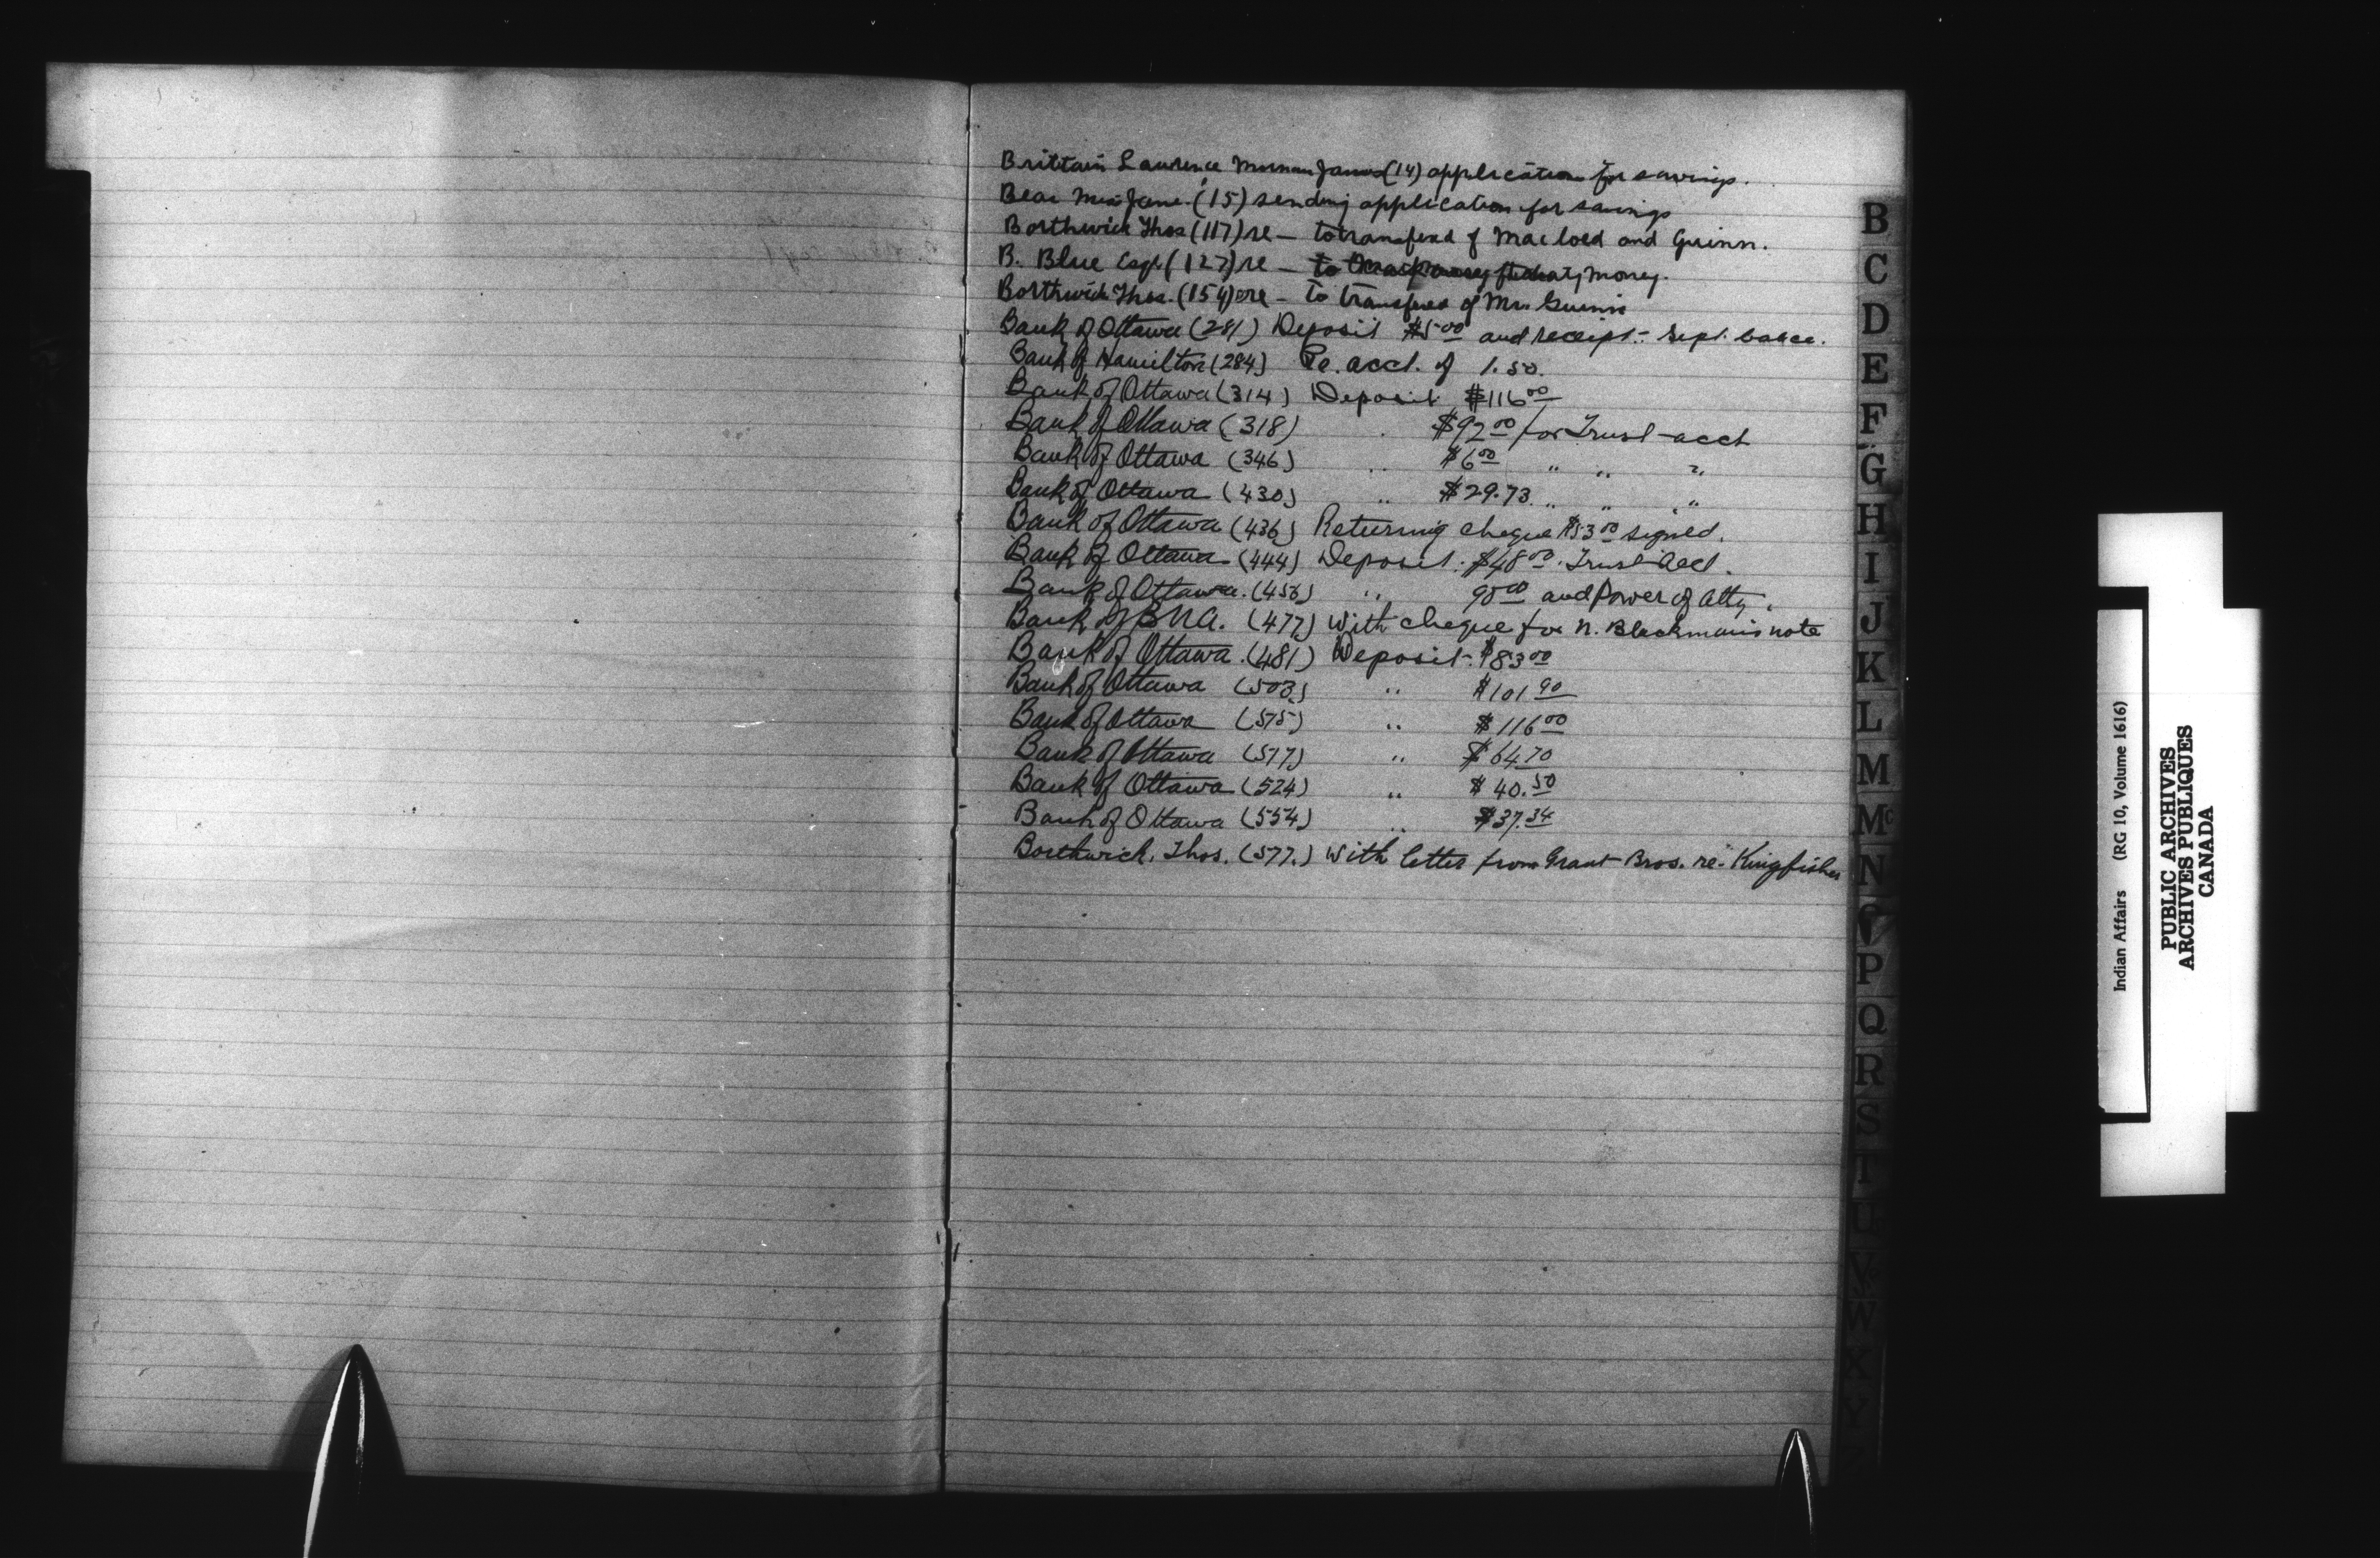 Brittain Laurence James (14) application for savings.
Bear Mrs Jane. (15) sending application for savings
Borthwick Thos (117) re — to transfered of Macloed and Guinn.
B. Blue Esqr. (127) re — to treaty money.
Borthwick Thos. (154) re — to transfered of Mr. Guinn
Bank of Ottawa (281) Deposit $5.00 and receipt - Sept. balce.
Bank of Hamilton (284) Re. acct. of 1.50.
Bank of Ottawa (314) Deposit $116.00
Bank of Ottawa (318) " $92.00 for Trust acct
Bank of Ottawa (346) " $6.00 " " "
Bank of Ottawa (430) " $29.73 " " "
Bank of Ottawa (436) Returning cheque $53.00 signed.
Bank of Ottawa (444) Deposit: $48.00. Trust Acct.
Bank of Ottawa. (456) " 95.00 and Power of Atty.
Bank of BNA. (477) with cheque for N. Blackman's note
Bank of Ottawa. (481) Deposit. $83.00
Bank of Ottawa (503) " $101.90
Bank of Ottawa (515) " $116.00
Bank of Ottawa (517) " $64.70
Bank of Ottawa (524) " $40.50
Bank of Ottawa (554) " $37.34
Borthwick, Thos. (577.) with letter from Grant Bros. re. Kingfisher
B
C
D
E
F
G
H
I
J
K
L
M
Mc
N
P
Q
R
S
T
U
V
W
X
Y
Indian Affairs (RG 10, Volume 1616)
PUBLIC ARCHIVES
ARCHIVES PUBLIQUES
CANADA